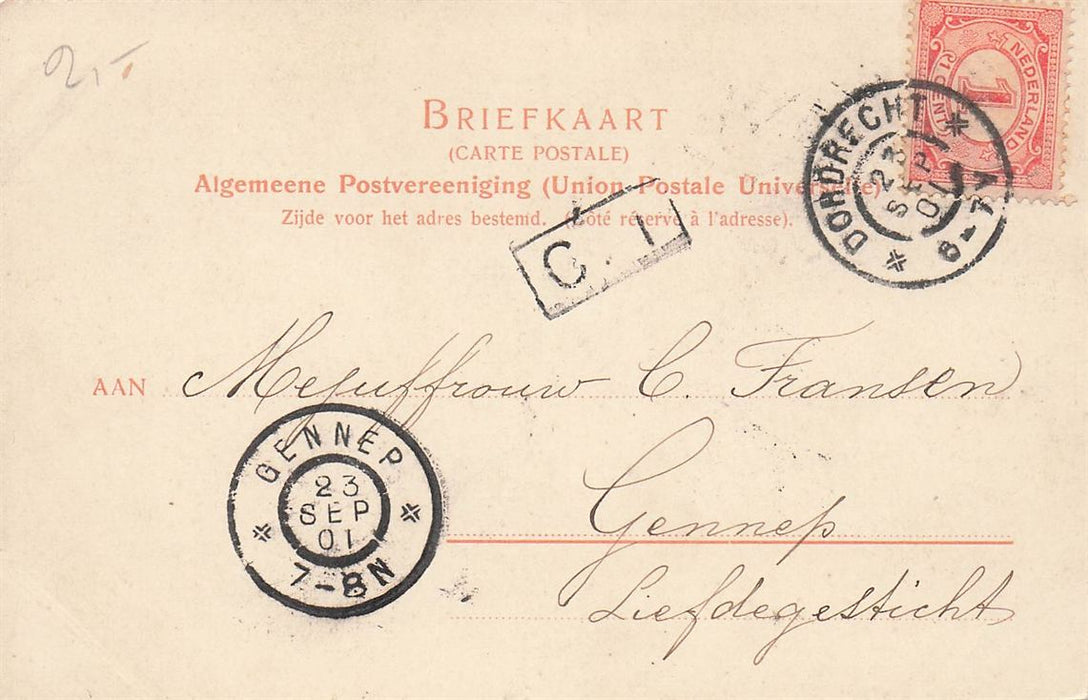 2,-
NEDERLAND
1
CENT
BRIEFKAART
(CARTE POSTALE)
Algemeene Postvereeniging (Union Postale Universelle)
Zijde voor het adres bestemd. (Côté réservé à l'adresse).
DORDRECHT
23
SEP
01
6-7V
C. 1
AAN Mejuffrouw C. Fransen
Gennep
Liefdegesticht
GENNEP
23
SEP
01
7-8N